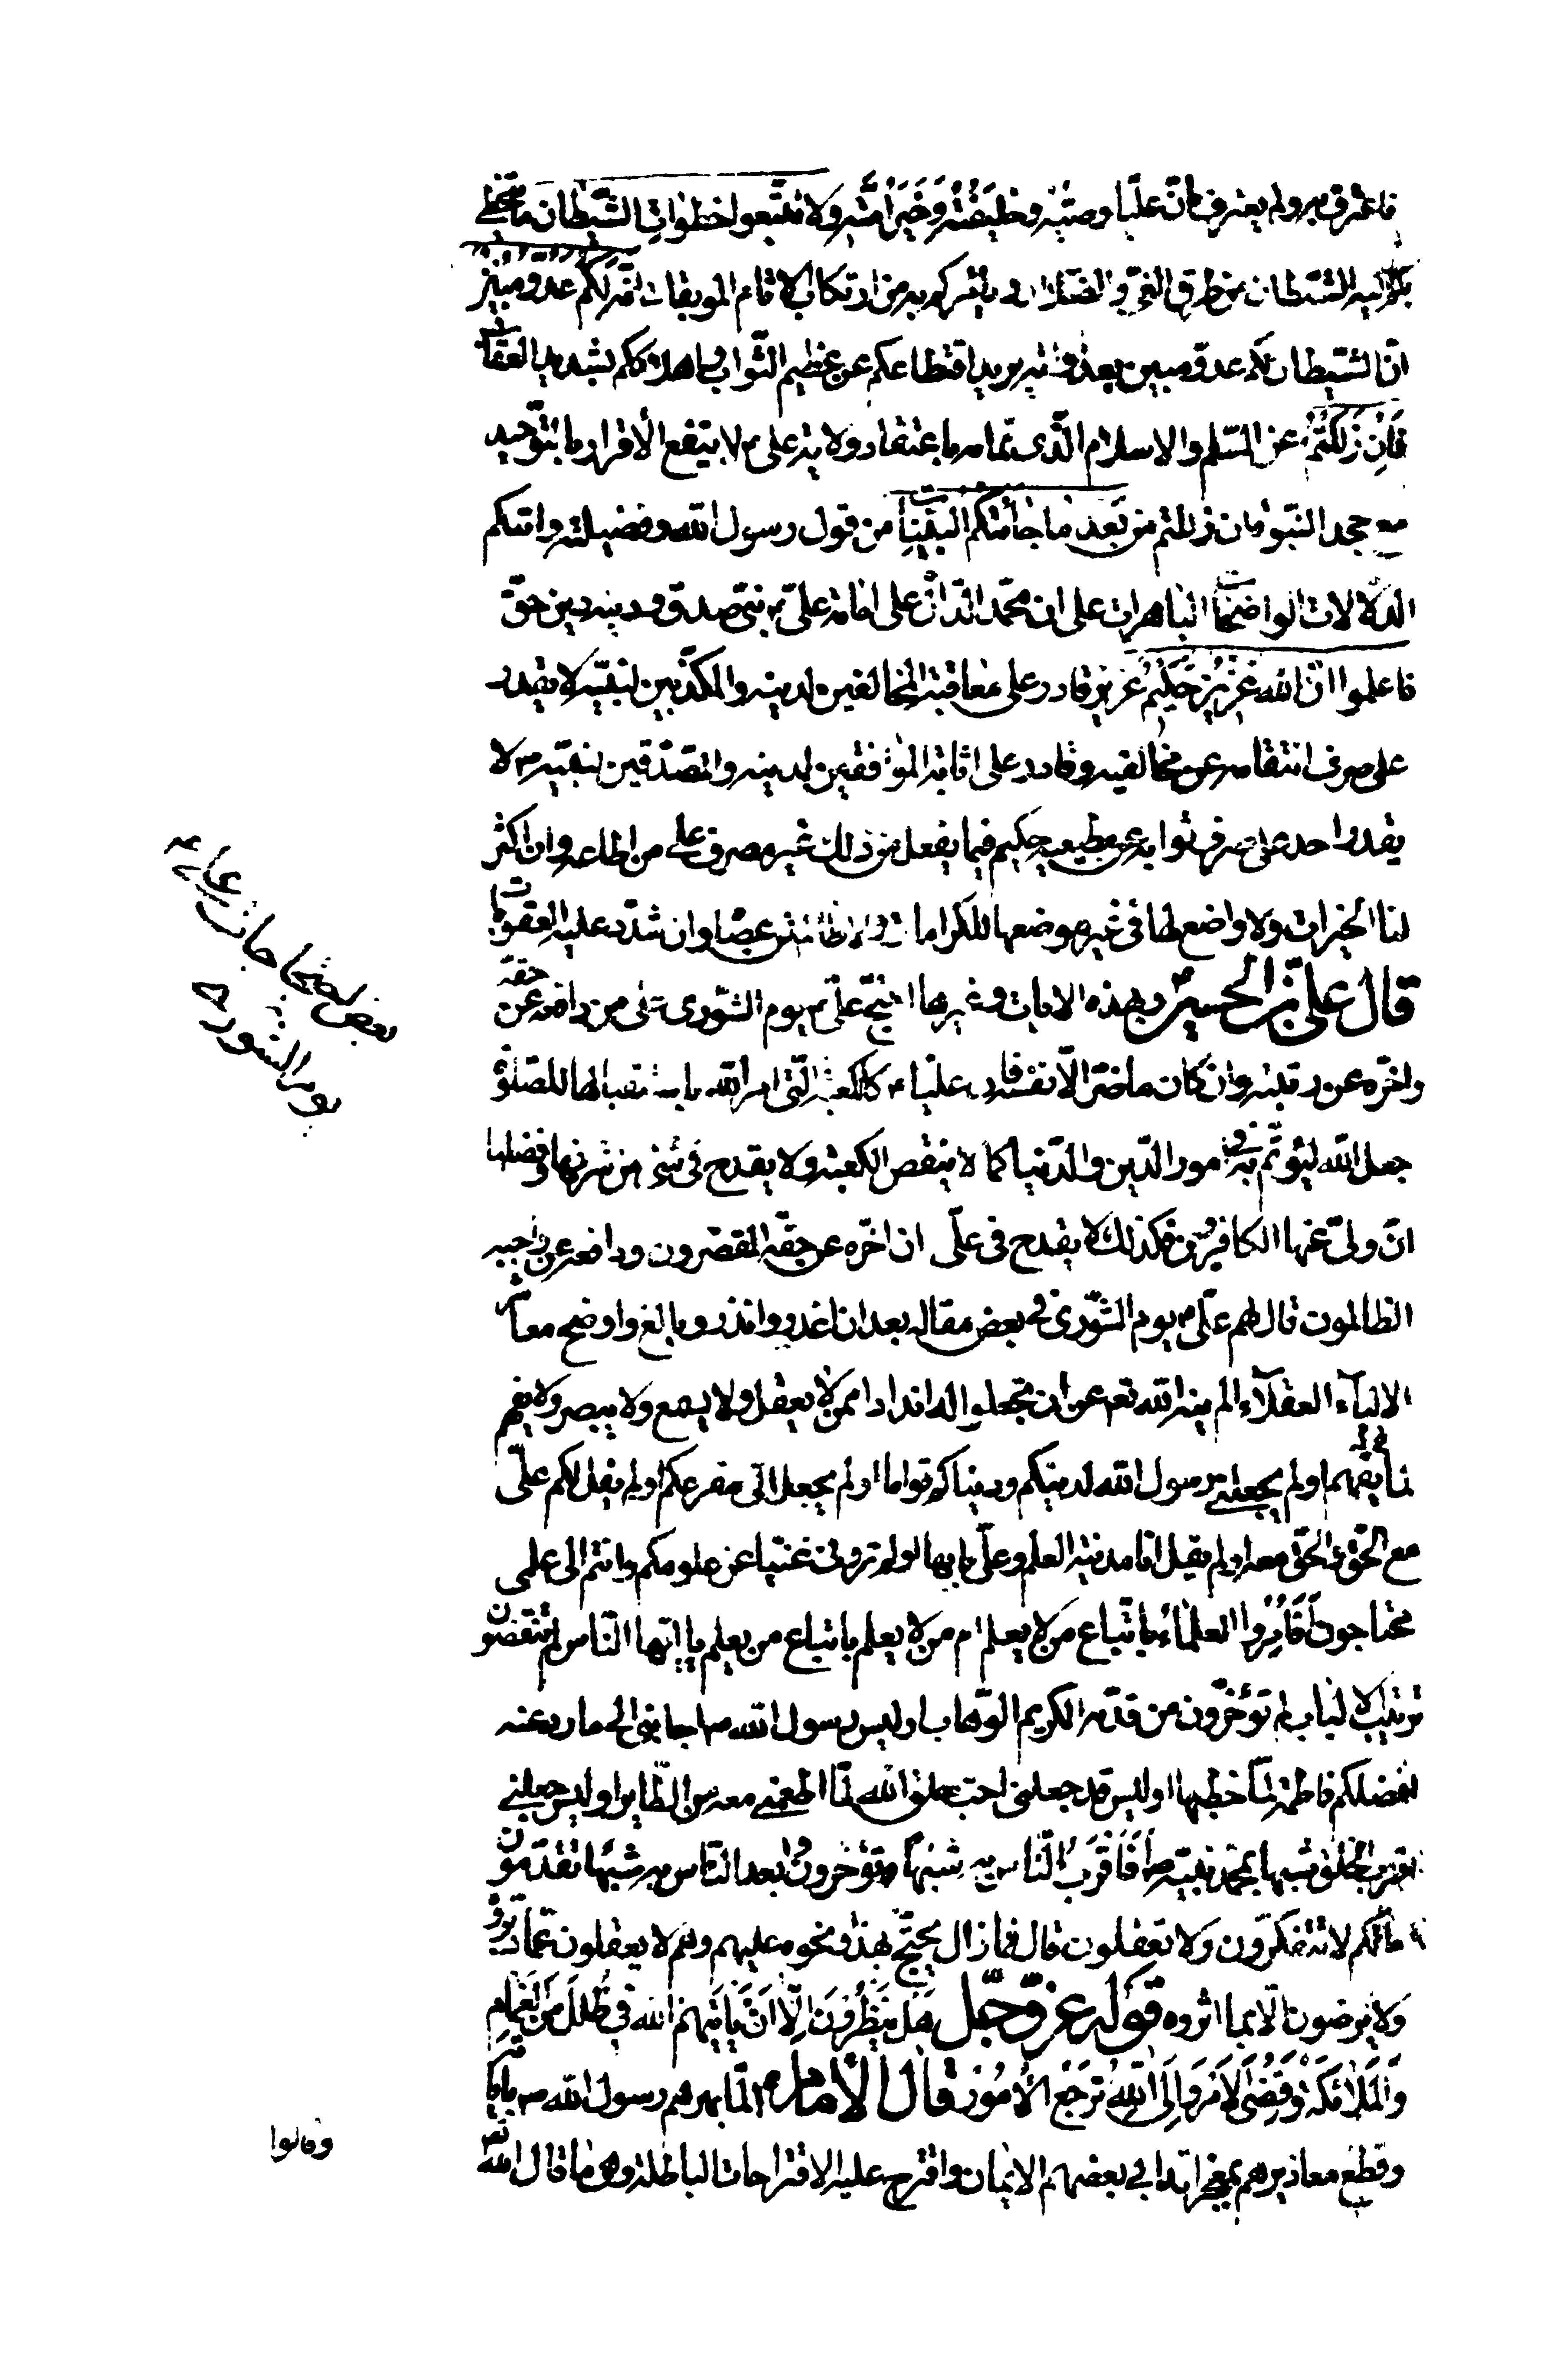 فاعترف به ولم يعترف بان عليا وصيه وخليفته وخير امته ولا تتبعوا خطوات الشيطان ما يتخطى
بكم اليه الشيطان من طرق الغي والضلال و يامركم به من ارتكاب الاثام الموبقات انه لكم عدو مبين
ان الشيطان لكم عدو مبين بعداوته يريد اقتطاعكم عن عظيم الثواب واهلاككم بشديد العقاب
فان زللتم عن السلم والاسلام الذى تمامه باعتقاد ولاية على ع لا ينفع الاقرار بالتوحيد
مع جحد النبوة فان زللتم من بعد ما جائتكم البينات من قول رسول الله وفضيلته واتتكم
الدلالات الواضحات الباهرات على ان محمدا الدال على امامة على ع نبى صدق ودينه دين حق
فاعلموا ان الله عزيز حكيم عزيز قادر على معاقبة المخالفين لدينه والمكذبين لنبيه لا يقدر
على صرف انتقامه عن مخالفيه وقادر على اثابة الموافقين لدينه والمصدقين لنبيه ص لا
يقدر احد على صرف ثوابه عن مطيعيه حكيم فيما يفعل من ذلك غير مصرف على من اطاعه وان اكثر
لنا الخيرات ولا واضع لها فى غير موضعها للكرامات ولا ظالم لمن عصاه وان شدد عليه العقوبات
قال على بن الحسين ع وبهذه الايات وغيرها احتج على ع يوم الشورى على من دافعه عن حقه
واخره عن رتبته وان كان ما ضر الا نفسه فان عليا ع كالكعبة التى امر الله باستقبالها للصلوة
جعل الله ليؤتم به فى امور الدين والدنيا كما لا ينقص الكعبة ولا يقدح فى شئ من شرفها وفضلها
ان ولى عنها الكافرون فكذلك لا يقدح فى على ان اخره عن حقه المقصرون ودافعه عن واجبه
الظالمون قال لهم على ع يوم الشورى فى بعض مقاله بعد ان اعذر وانذر وبالغ واوضح معاشر
الالباء العقلاء الم ينه الله تعم عن ان تجعلوا له اندادا ممن لا يعقل ولا يسمع ولا يبصر ولا يفهم
كما يفهم اولم يجعلنى رسول الله لدينكم ودنياكم قواما اولم يجعل الى مفزعكم اولم يقل لكم على
مع الحق والحق معه اولم يقل انا مدينة العلم وعلى بابها اولم ترونى غنيا عن علومكم وانتم الى علمى
محتاجون افامر العلماء باتباع من لا يعلم ام من لا يعلم باتباع من يعلم يا ايها الناس لم تنقضون
ترتيب الالباب لم تؤخرون من قدمه الكريم الوهاب اوليس رسول الله ص اجابنى الى ما رد عنه
افضلكم فاطمة لما خطبها اوليس قد جعلنى احب خلق الله لما اطعمنى معه من الطاير اوليس جعلنى
اقرب الخلق شبها بمحمد نبيه ص افاقرب الناس به شبها تؤخرون وابعد الناس به شبها تقدمون
ما لكم لا تتفكرون ولا تعقلون قال فما زال يحتج بهذا ونحوه عليهم وهم لا يعقلون عما دبروه
ولا يرضون الا بما اثروه قوله عز وجل هل ينظرون الا ان ياتيهم الله فى ظلل من الغمام
والملائكة وقضى الامر والى الله ترجع الامور قال الامام ع لما بهرهم رسول الله ص باياته
وقطع معاذيرهم بمعجزاته ابى بعضهم الايمان واقترح عليه الاقتراحات الباطلة وهى ما قال الله تعم
وقالوا
بعض احتجاجات على ع
يوم الشورى